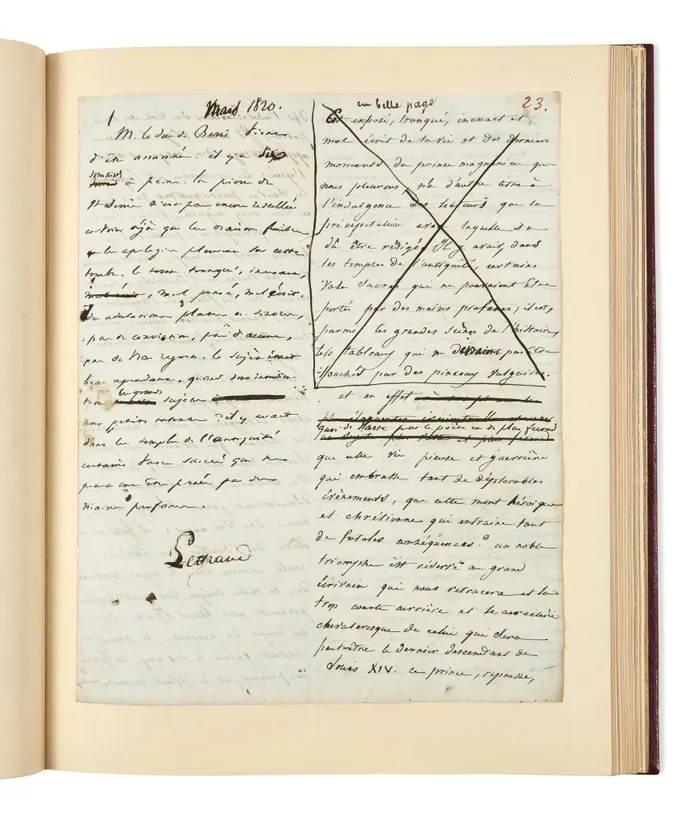 1
Mars 1820.
M. le duc de Berri vient
d'être assassiné. il y a six
semaines
à peine. la pierre de
St Denis n'est pas encore rescellée
et voici déjà que les oraisons funèbres
et les apologies pleuvent sur cette
tombe. le tout tronqué, incorrect,
mal pensé, mal écrit.
des adulations plates ou sonores,
pas de conviction, pas d'accent,
pas de vrai regret. le sujet était
beau cependant. quand
les grands
sujets
aux petits talens? il y avait
dans les temples de l'antiquité
certains vases sacrés qui ne
pouvaient être portés par des
mains profanes.
Legrand
en belle page
23.
Cet exposé, tronqué, inexact et
mal écrit de la vie et des derniers
moments du prince magnanime que
nous pleurons, n'a d'autre titre à
l'indulgence des lecteurs que la
précipitation avec laquelle il a
dû être rédigé. Il y avait, dans
les temples de l'antiquité, certains
vases sacrés que ne pouvaient être
portés par des mains profanes; il est,
parmi les grandes scènes de l'histoire,
tels tableaux qui ne devraient pas être
touchés par des pinceaux vulgaires.
et en effet
que cette vie pieuse et guerrière
qui embrasse tant de déplorables
évènements, que cette mort héroïque
et chrétienne qui entraine tant
de fatales conséquences? un noble
triomphe est réservé au grand
écrivain qui nous retracera et la
trop courte carrière et le caractère
chevaleresque de celui qui sera
peut-être le dernier descendant de
Louis XIV. ce prince, repoussé,